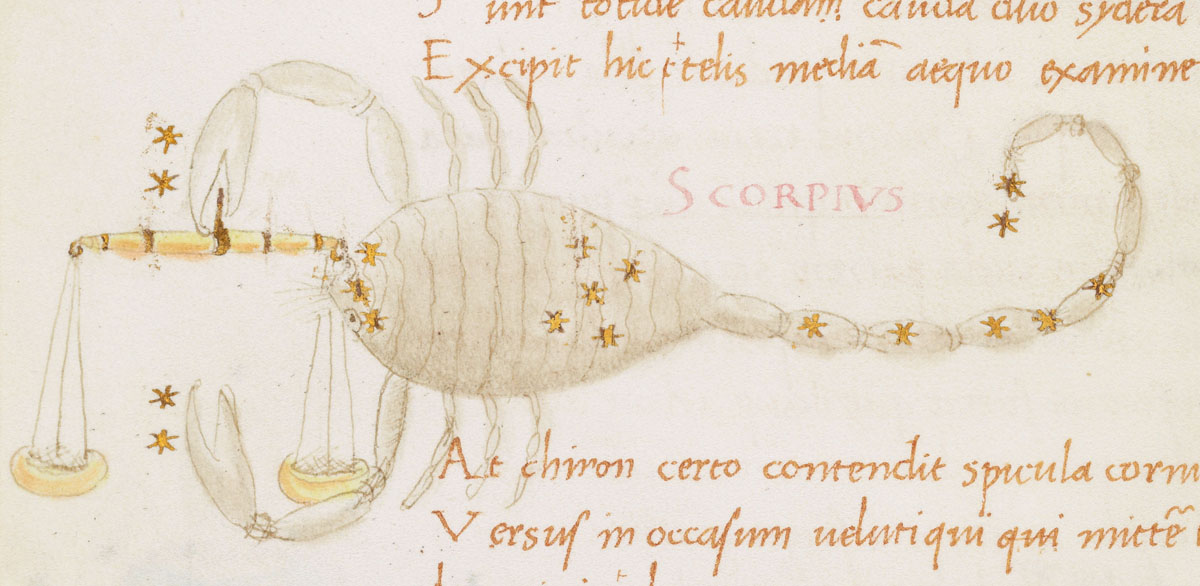 unt totide caudam cauda duo sydera
Excipit hic †telis mediā aequo examine
SCORPIVS
At chiron certo contendit spicula cornu
Versus in occasum uelutiqui qui mittē